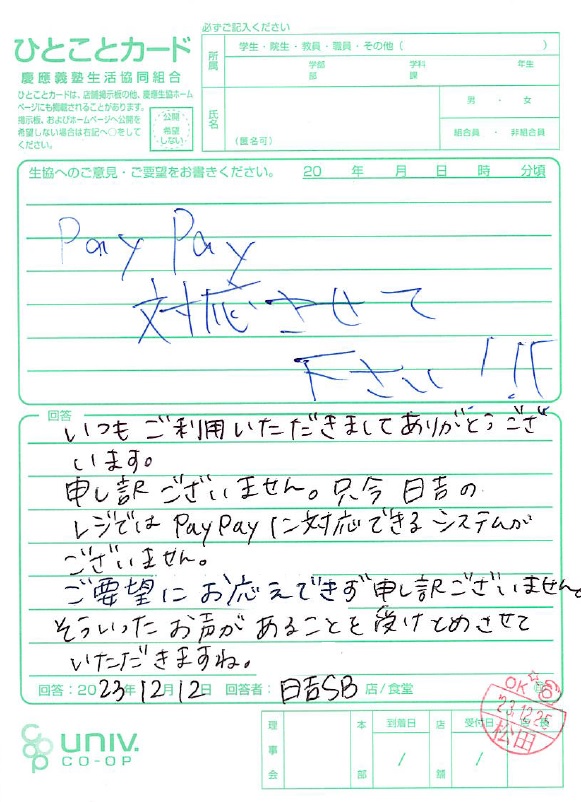 必ずご記入ください
ひとことカード
慶應義塾生活協同組合
ひとことカードは、店舗掲示板の他、慶應生協ホーム
ページにも掲載されることがあります。
掲示板、およびホームページへ公開を
希望しない場合は右記へ○をして
ください。
公開
希望
しない
所属
学生・院生・教員・職員・その他（　　　　）
学部 学科 年生
部 課
氏名
（匿名可）
男 ・ 女
組合員 ・ 非組合員
生協へのご意見・ご要望をお書きください。 20　年　月　日　時　分頃
Pay Pay
対応させて
下さい!!!
回答
いつもご利用いただきましてありがとうござ
います。
申し訳ございません。只今日吉の
レジではPayPayに対応できるシステムが
ございません。
ご要望にお応えできず申し訳ございません。
そういったお声があることを受けとめさせて
いただきますね。
回答：2023年12月12日 回答者：日吉SB 店/食堂
OK
23.12.25
松田
univ.
CO-OP
理事会
本部
到着日
/
店舗
受付日
/